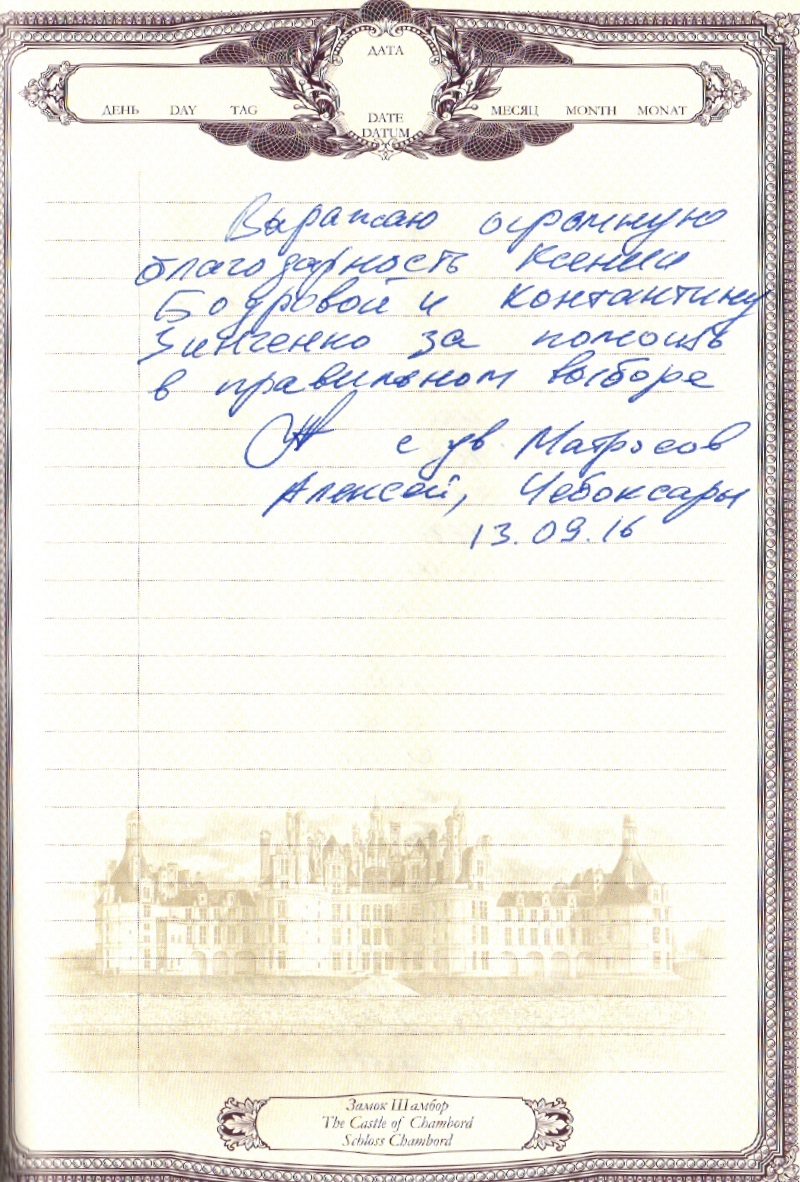 ДАТА
ДЕНЬ DAY TAG
DATE
DATUM
МЕСЯЦ MONTH MONAT
Выражаю огромную
благодарность Ксении
Бодровой и Контантину
Зинченко за помощь
в правильном выборе
с ув. Матросов
Алексей, Чебоксары
13.09.16
Замок Шамбор
The Castle of Chambord
Schloss Chambord